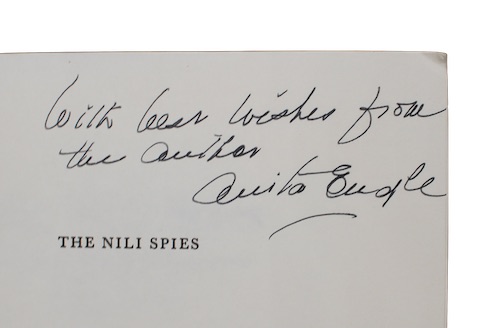 With best wishes from
the author
Anita Engle
THE NILI SPIES